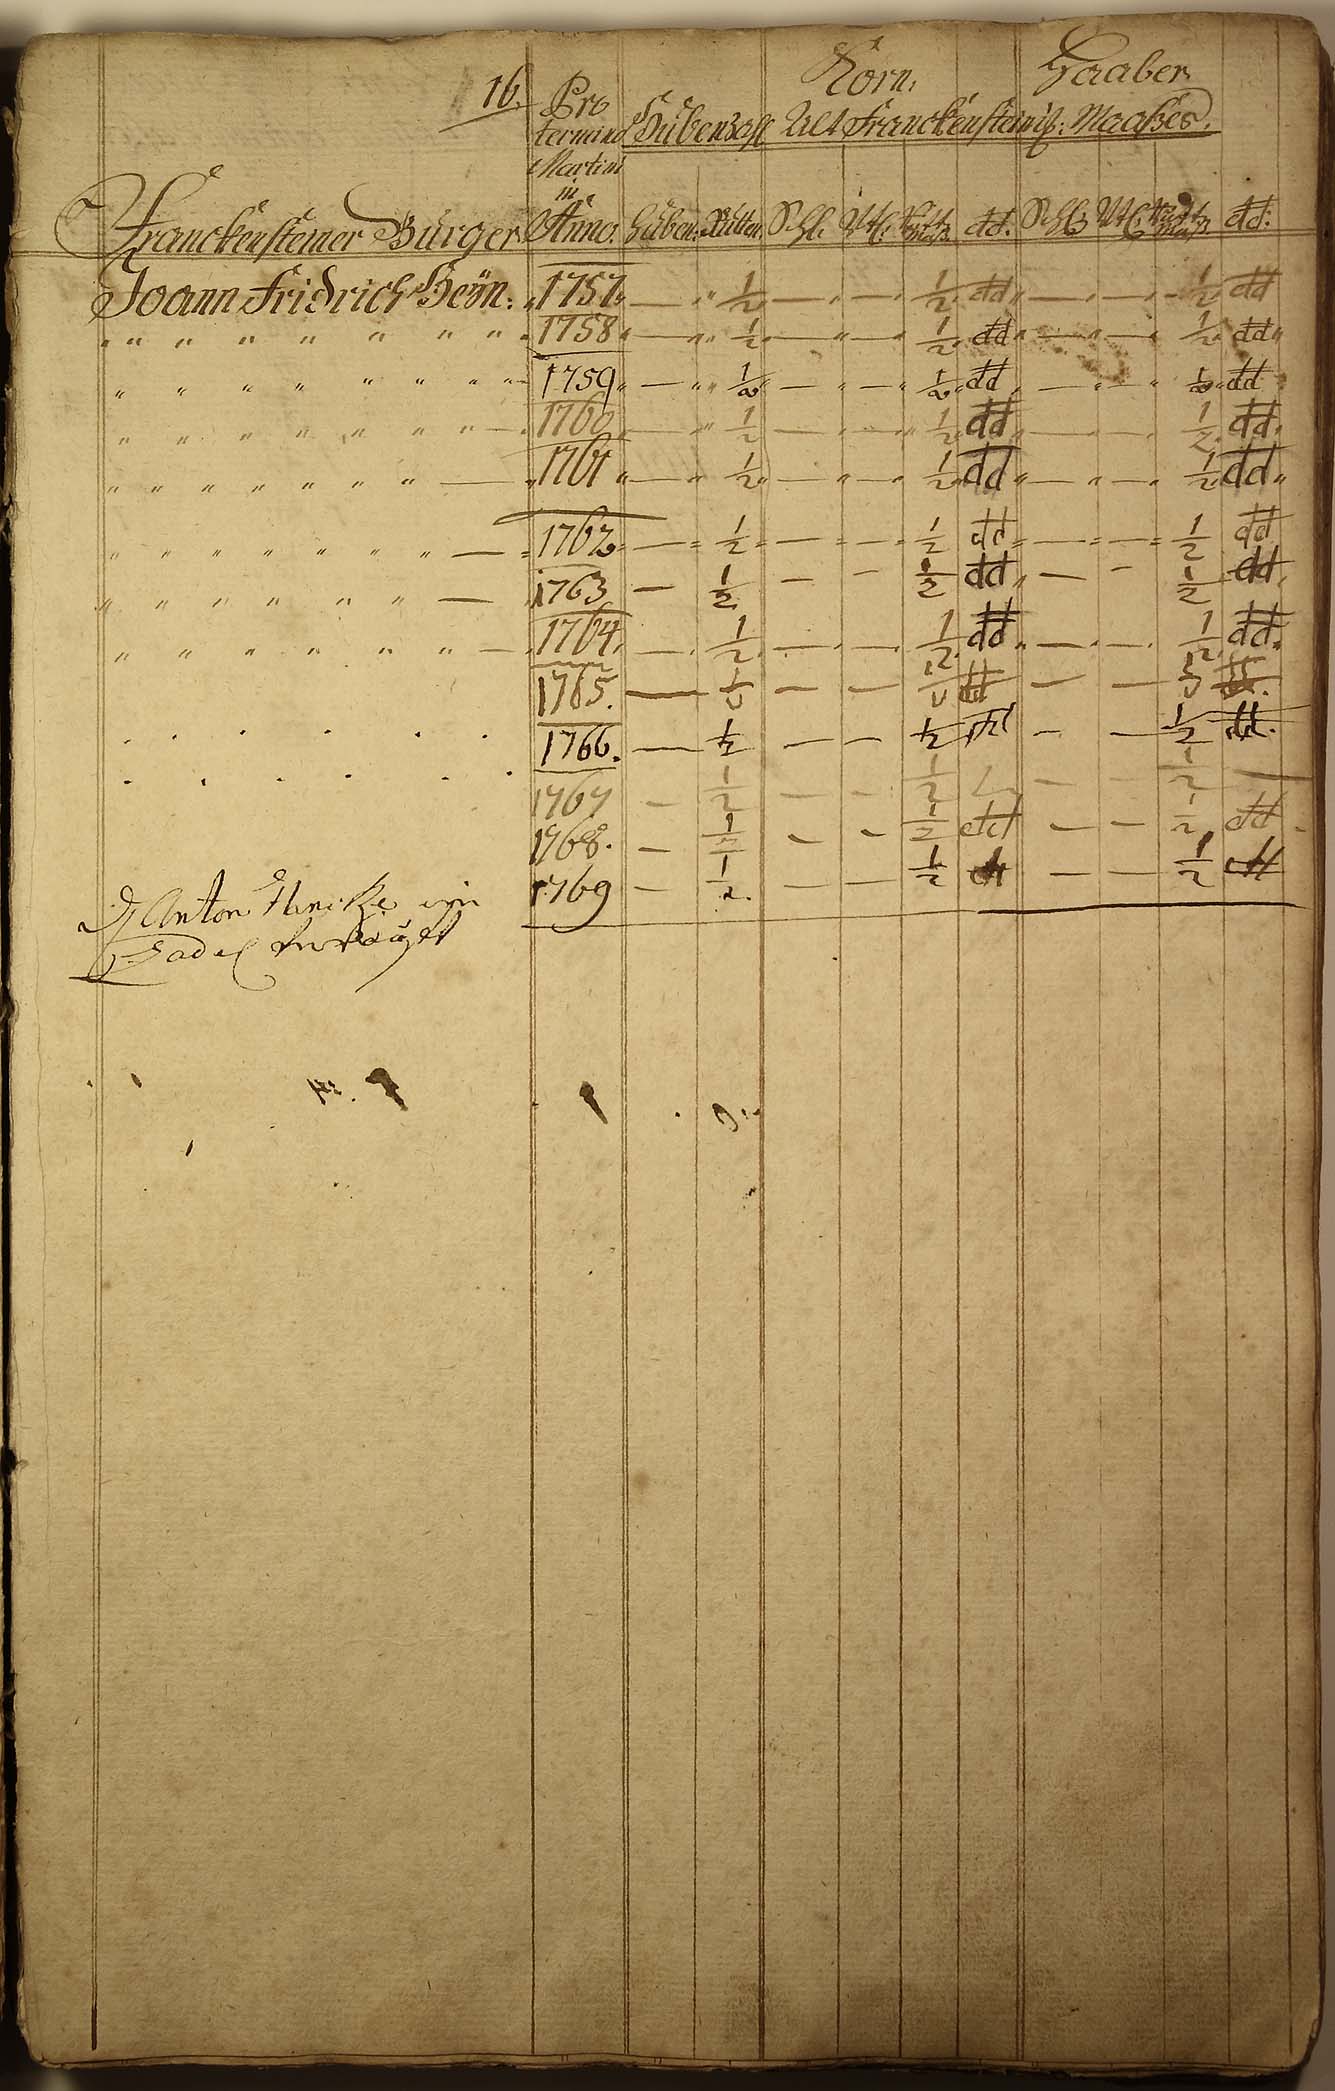 16. Pro Korn, Haaber
termino Hubenzahl Alt Franckensteinisch: Maaßes.
Martini
in
Franckensteiner Bürger Anno. Huben. Rutten. Schl. Vtl. dd. Schl. Vtl. dd:
Joann Fridrich Beÿn: " 1757 " — " " 1/2 " — " — " 1/2 dd " — " — " 1/2 dd
" " " " " " " " 1758 " — " " 1/2 " — " — " 1/2 dd " — " — " 1/2 dd "
" " " " " " " " 1759 " — " " 1/2 " — " — " 1/2 dd " — " — " 1/2 dd
" " " " " " " — 1760 " — " " 1/2 — " — " 1/2 dd " — " — " 1/2 dd.
" " " " " " " — " 1761 " — " 1/2 " — " — " 1/2 dd " — " — " 1/2 dd "
" " " " " " " — 1762 " — " 1/2 " — " — " 1/2 dd " — " — " 1/2 dd
" " " " " " — 1763 — 1/2 — - 1/2 dd " — - 1/2 dd.
" " " " " " " — 1764. — . 1/2 . — . — . 1/2 dd . — . — . 1/2 dd.
1765. — 1/2 — — 1/2 dd — — 1/2 dd.
. . . . . . 1766. — 1/2 — — 1/2 dd - — 1/2 dd.
. . . . . . 1767 — 1/2 — - 1/2 — - 1/2 —
1768. — 1/2 - - 1/2 dd — — 1/2 dd
1769 — 1/2. — — 1/2 dd — — 1/2 dd
Anton
Zadel